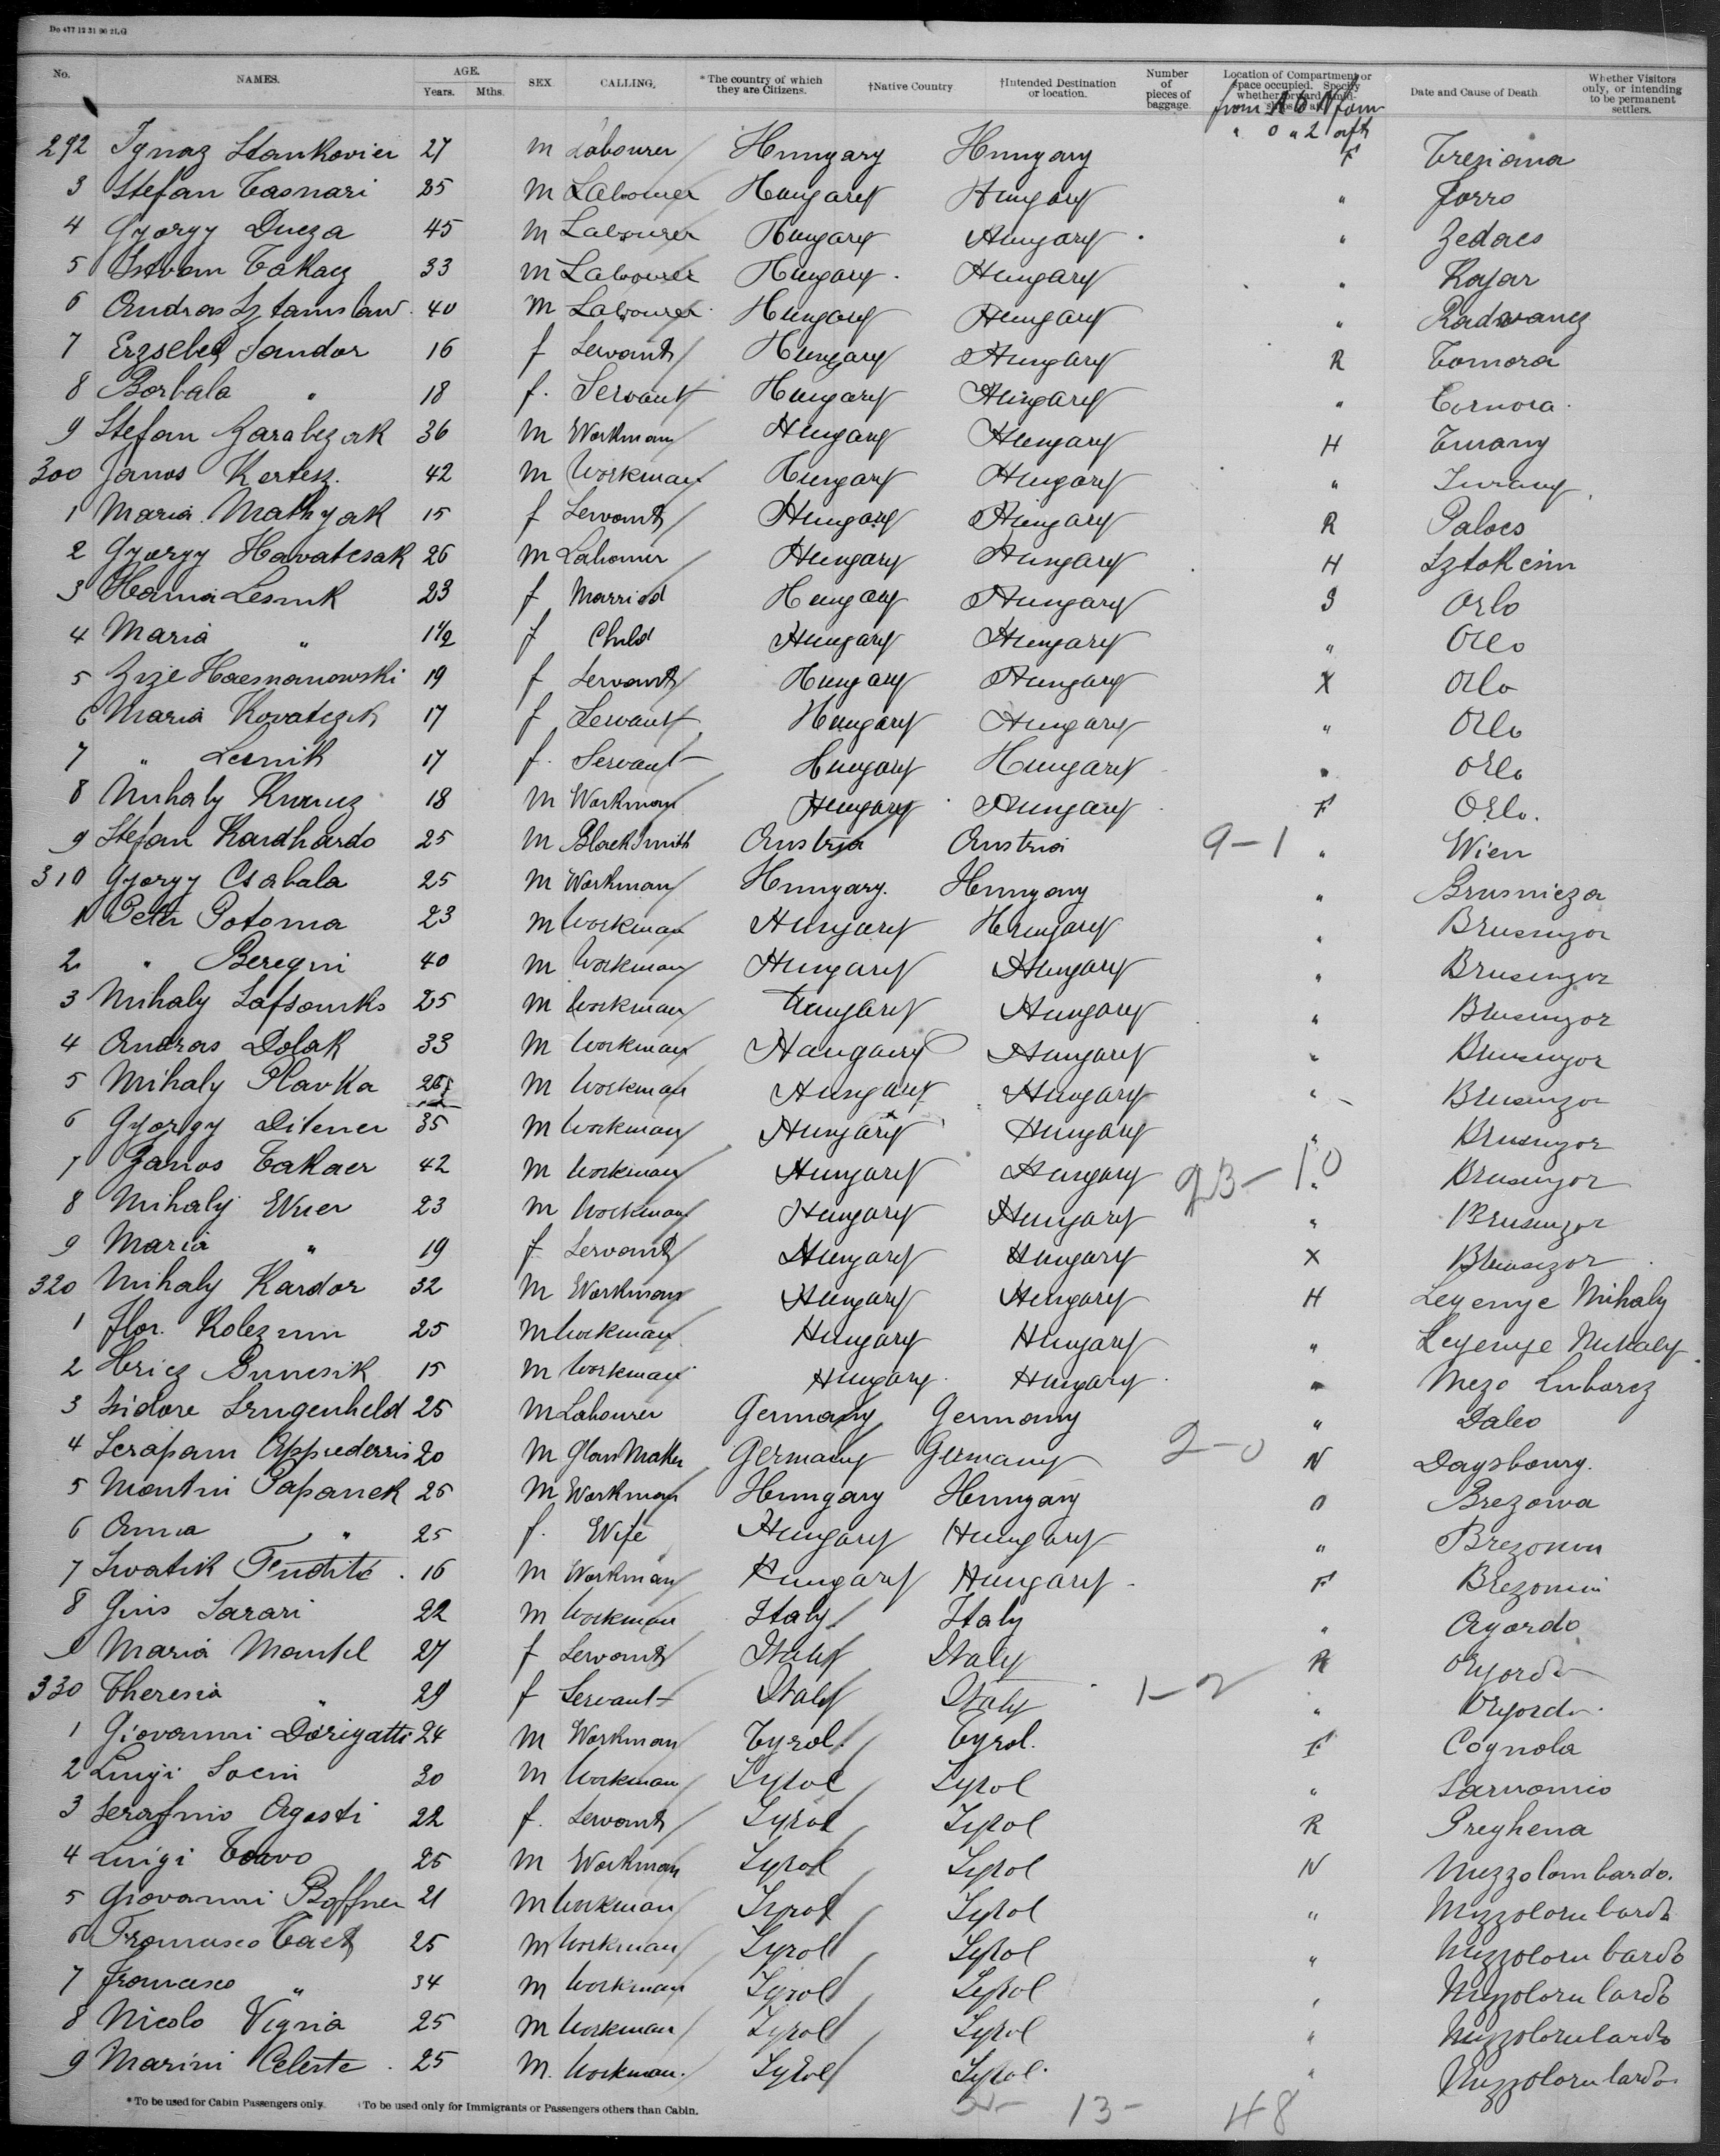 Do 477 12 31 90 2LG
No. NAMES. AGE. Years. Mths. SEX CALLING, *The country of which they are Citizens. †Native Country †Intended Destination or location. Number of pieces of baggage. Location of Compartment or space occupied. Specify whether forward, Date and Cause of Death Whether Visitors only, or intending to be permanent settlers.
from A to N forw
" O " 2 aft
292 Ignaz Stankovier 27 M Labourer Hungary Hungary F Treziana
3 Stefan Tasnari 25 M Labourer Hungary Hungary " Forro
4 Gyorgy Ducza 45 M Labourer Hungary Hungary " Zedaes
5 Istvan Takacz 33 M Labourer Hungary Hungary " Kajar
6 Andras Sztanislaw 40 M Labourer Hungary Hungary " Radvancz
7 Erzsebet Sandor 16 f Servant Hungary Hungary R Tomora
8 Borbala " 18 f. Servant Hungary Hungary " Tomora
9 Stefan Harabezak 36 M Workman Hungary Hungary H Turany
300 Janos Kertesz. 42 M Workman Hungary Hungary " Turany
1 Maria Mathyak 15 f Servant Hungary Hungary R Paloes
2 Gyorgy Havatcsak 26 M Labourer Hungary Hungary H Sztokcsin
3 Hania Lesnik 23 f Married Hungary Hungary S Orlo
4 Maria " 1 1/2 f Child Hungary Hungary " Orlo
5 Zuze Haesmanowski 19 f Servant Hungary Hungary X Orlo
6 Maria Kovatczik 17 f Servant Hungary Hungary " Orlo
7 " Lesnik 17 f. Servant Hungary Hungary " Orlo
8 Mihaly 18 M Workman Hungary Hungary F Orlo.
9 Stefan Kardhardo 25 M Blacksmith Austria Austria 9-1 " Wien
310 Gyorgy Csabala 25 M Workman Hungary. Hungary " Brusnicza
11 Petr Potoma 23 M Workman Hungary Hungary "
2 " Beregni 40 M Workman Hungary Hungary "
3 Mihaly 25 M Workman Hungary Hungary "
4 Andras Dolak 33 M Workman Hungary Hungary "
5 Mihaly Plavka 26 M Workman Hungary Hungary "
6 Gyorgy Ditener 35 M Workman Hungary Hungary "
7 Janos Takacr 42 M Workman Hungary Hungary 23-10 "
8 Mihaly Wuer 23 M Workman Hungary Hungary "
9 Maria " 19 f Servant Hungary Hungary X
320 Mihaly Kardor 32 M Workman Hungary Hungary H Legenye Mihaly
1 Flor. 25 M Workman Hungary Hungary " Legenye Mihaly
2 15 M Workman Hungary Hungary " Mezo Luborcz
3 Isidore 25 M Labourer Germany Germany " Daleo
4 Serapam 20 M Glass Maker Germany Germany 2-0 N Dagsbourg.
5 Martin Papanek 26 M Workman Hungary Hungary O Brezowa
6 Anna " 25 f. Wife Hungary Hungary "
7 Swatik 16 M Workman Hungary Hungary F
8 Gius Sarari 22 M Workman Italy Italy " Agordo
9 Maria Mantel 27 f Servant Italy Italy R Agordo
330 Theresia " 29 f Servant Italy Italy 1-2 " Agordo
1 Giovanni Dorigatti 24 M Workman Tyrol. Tyrol. F Cognola
2 Luigi Socin 30 M Workman Tyrol Tyrol " Sarnonico
3 Serafino Agosti 22 f. Servant Tyrol Tyrol R Preghena
4 Luigi Tavo 26 M Workman Tyrol Tyrol N Mezzolombardo.
5 Giovanni Boffner 21 M Workman Tyrol Tyrol " Mezzolombardo
6 Francesco Taet 25 M Workman Tyrol Tyrol " Mezzolombardo
7 Francesco " 34 M Workman Tyrol Tyrol " Mezzolombardo
8 Nicolo Vigna 25 M Workman Tyrol Tyrol " Mezzolombardo
9 Marini Celeste 25 M. Workman. Tyrol Tyrol. " Mezzolombardo
*To be used for Cabin Passengers only. †To be used only for Immigrants or Passengers others than Cabin.
13- 48